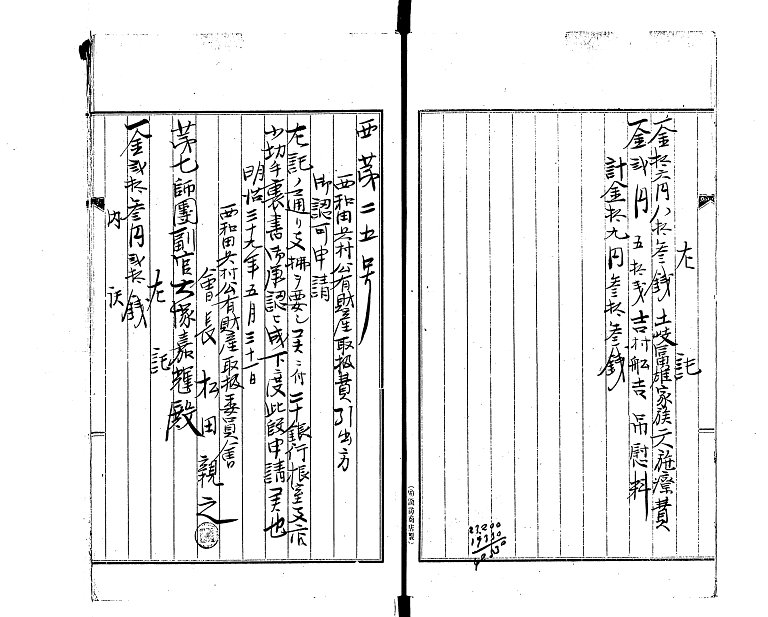 左記
金拾六円八拾参銭 土岐富雄家族 施療費
金弐円五拾銭 吉村船吉 吊慰料
計金拾九円参拾参銭
27.200
19.330
西第二五号
西和田兵村公有財産取扱費引出方
御認可申請
左記ノ通リ支拂ヲ要シ候ニ付二十銀行根室支店
小切手裏書御承認ヒ成下度此段申請候也
明治三十九年五月三十一日
西和田兵村公有財産取扱委員
會長 松田親之
第七師團副官大塚嘉輝殿
左記
金弐拾参円弐拾銭
内訳